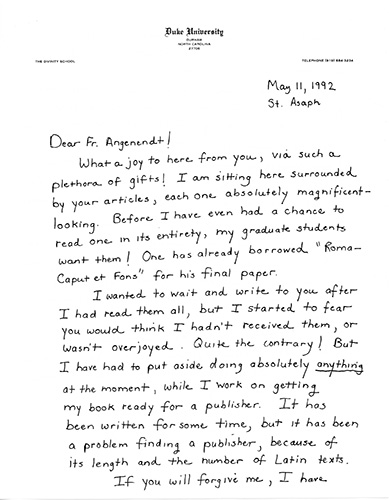 Duke University
DURHAM
NORTH CAROLINA
27706
THE DIVINITY SCHOOL
TELEPHONE (919) 684-3234
May 11, 1992
St. Asaph
Dear Fr. Angenendt!
What a joy to here from you, via such a
plethora of gifts! I am sitting here surrounded
by your articles, each one absolutely magnificent-
looking. Before I have even had a chance to
read one in its entirety, my graduate students
want them! One has already borrowed "Roma-
Caput et Fons" for his final paper.
I wanted to wait and write to you after
I had read them all, but I started to fear
you would think I hadn't received them, or
wasn't overjoyed. Quite the contrary! But
I have had to put aside doing absolutely anything
at the moment, while I work on getting
my book ready for a publisher. It has
been written for some time, but it has been
a problem finding a publisher, because of
its length and the number of Latin texts.
If you will forgive me, I have